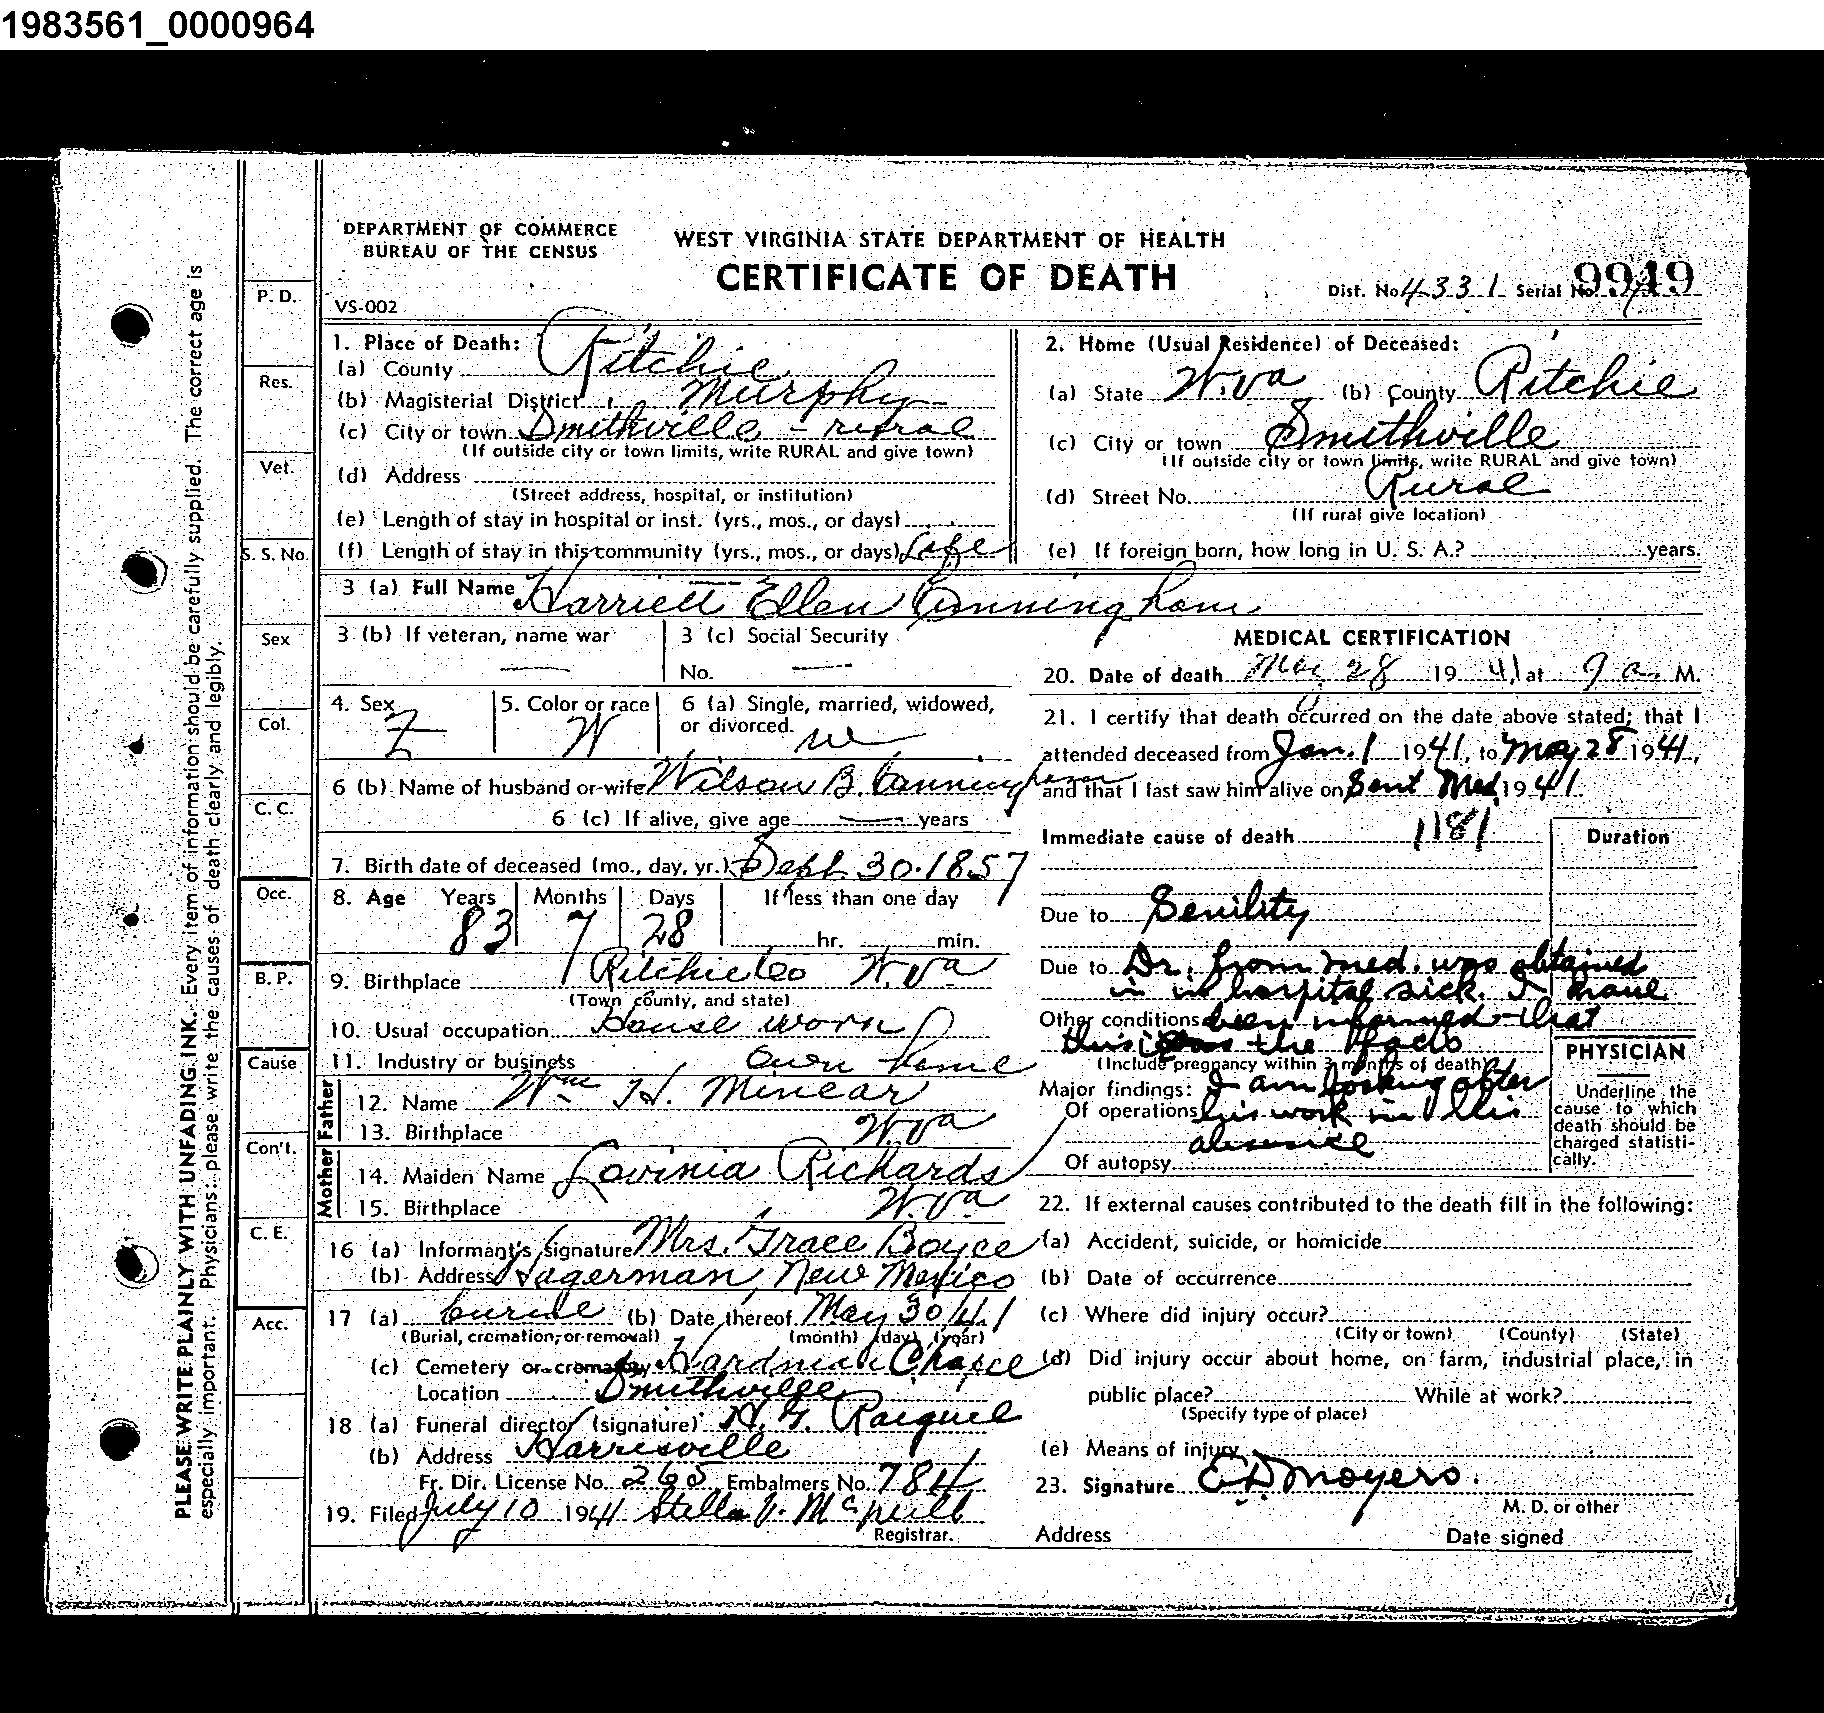 1983561_0000964
DEPARTMENT OF COMMERCE
BUREAU OF THE CENSUS
WEST VIRGINIA STATE DEPARTMENT OF HEALTH
CERTIFICATE OF DEATH
VS-002
Dist. No. 4331 Serial No. 9949
PLEASE WRITE PLAINLY WITH UNFADING INK. Every item of information should be carefully supplied. The correct age is
especially important. Physicians: please write the causes of death clearly and legibly.
P. D.
Res.
Vet.
S. S. No.
Sex
Col.
C. C.
Occ.
B. P.
Cause
Con't.
C. E.
Acc.
1. Place of Death:
(a) County Ritchie
(b) Magisterial District Murphy
(c) City or town Smithville - rural
(If outside city or town limits, write RURAL and give town)
(d) Address
(Street address, hospital, or institution)
(e) Length of stay in hospital or inst. (yrs., mos., or days)
(f) Length of stay in this community (yrs., mos., or days) Life
2. Home (Usual Residence) of Deceased:
(a) State W.va (b) County Ritchie
(c) City or town Smithville
(If outside city or town limits, write RURAL and give town)
(d) Street No. Rural
(If rural give location)
(e) If foreign born, how long in U. S. A.? years.
3 (a) Full Name Harriett Ellen Cunningham
3 (b) If veteran, name war —
3 (c) Social Security
No. —
4. Sex F
5. Color or race W
6 (a) Single, married, widowed,
or divorced. W
6 (b) Name of husband or wife Wilson B. Cunningham
6 (c) If alive, give age — years
7. Birth date of deceased (mo., day, yr.) Sept 30. 1857
8. Age Years Months Days If less than one day
83 7 28 hr. min.
9. Birthplace Ritchie Co W.va
(Town county, and state)
10. Usual occupation House work
11. Industry or business own home
Father
12. Name Wm H. Minear
13. Birthplace W.va
Mother
14. Maiden Name Lovinia Richards
15. Birthplace W.va
16 (a) Informant's signature Mrs. Grace Boyce
(b) Address Hagerman, New Mexico
17 (a) burial (b) Date thereof May 30 41
(Burial, cremation, or removal) (month) (day) (year)
(c) Cemetery or crematory Hardman Chapel
Location Smithville
18 (a) Funeral director (signature) H. G.
(b) Address Harrisville
Fr. Dir. License No. 265 Embalmers No. 784
19. Filed July 10 1941 Stella V. McNeill
Registrar.
MEDICAL CERTIFICATION
20. Date of death May 28 1941 at 9 a. M.
21. I certify that death occurred on the date above stated; that I
attended deceased from Jan. 1 1941, to May 28 1941,
and that I last saw him alive on Sent Med. 1941.
Immediate cause of death
Duration
Due to Senility
Due to Dr. from med. was obtained
is in hospital sick. I have
Other conditions been informed that
this is the facts
(Include pregnancy within 3 months of death)
Major findings: I am looking after
Of operations his work in his
absence
Of autopsy
PHYSICIAN
Underline the
cause to which
death should be
charged statisti-
cally.
22. If external causes contributed to the death fill in the following:
(a) Accident, suicide, or homicide
(b) Date of occurrence
(c) Where did injury occur?
(City or town) (County) (State)
(d) Did injury occur about home, on farm, industrial place, in
public place? While at work?
(Specify type of place)
(e) Means of injury
23. Signature E. D. Moyers.
M. D. or other
Address Date signed